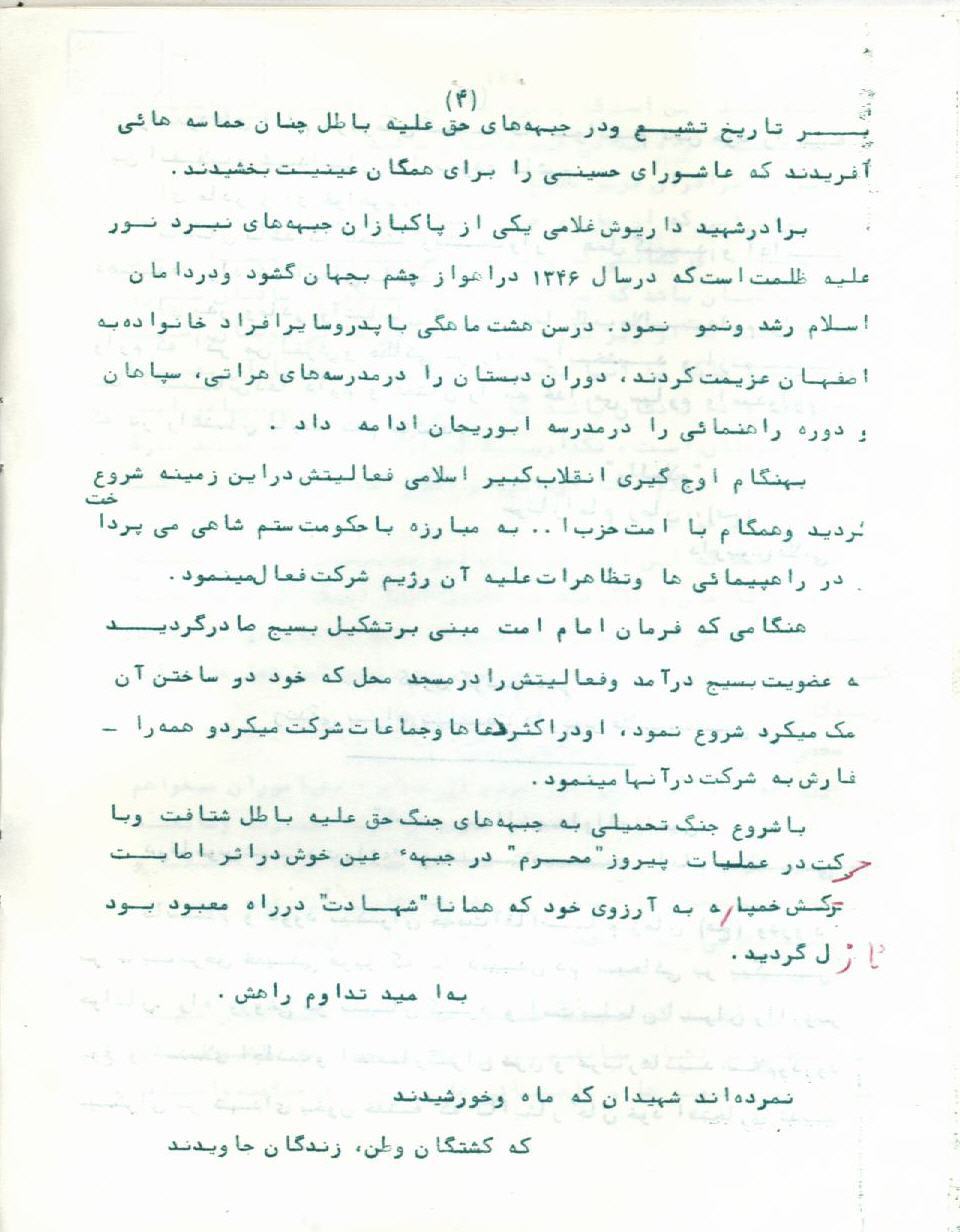 (۴)
بر تاریخ تشیع ودر جبهه‌های حق علیه باطل چنان حماسه هائی
آفریدند که عاشورای حسینی را برای همگان عینیت بخشیدند.
برادرشهید داریوش غلامی یکی از پاکبازان جبهه‌های نبرد نور
علیه ظلمت است که درسال ۱۳۴۶ دراهواز چشم بجهان گشود ودردامان
اسلام رشد ونمو نمود، درسن هشت ماهگی باپدروسایرافراد خانواده به
اصفهان عزیمت کردند، دوران دبستان را درمدرسه‌های هراتی، سپاهان
و دوره راهنمائی را درمدرسه ابوریحان ادامه داد .
بهنگام اوج گیری انقلاب کبیر اسلامی فعالیتش دراین زمینه شروع
گردید وهمگام با امت حزب ا.. به مبارزه باحکومت ستم شاهی می پرداخت
در راهپیمائی ها وتظاهرات علیه آن رژیم شرکت فعال مینمود.
هنگامی که فرمان امام امت مبنی برتشکیل بسیج صادرگردید
ه عضویت بسیج درآمد وفعالیتش را درمسجد محل که خود در ساختن آن
مک میکرد شروع نمود، اودراکثردعاها وجماعات شرکت میکردو همه را _
فارش به شرکت درآنها مینمود.
باشروع جنگ تحمیلی به جبهه‌های جنگ حق علیه باطل شتافت وبا
حرکت در عملیات پیروز"محرم" در جبههٔ عین خوش دراثر اصابت
ترکش خمپاره به آرزوی خود که همانا "شهادت" درراه معبود بود
نازل گردید.
به امید تداوم راهش .
نمرده‌اند شهیدان که ماه وخورشیدند
که کشتگان وطن، زندگان جاویدند